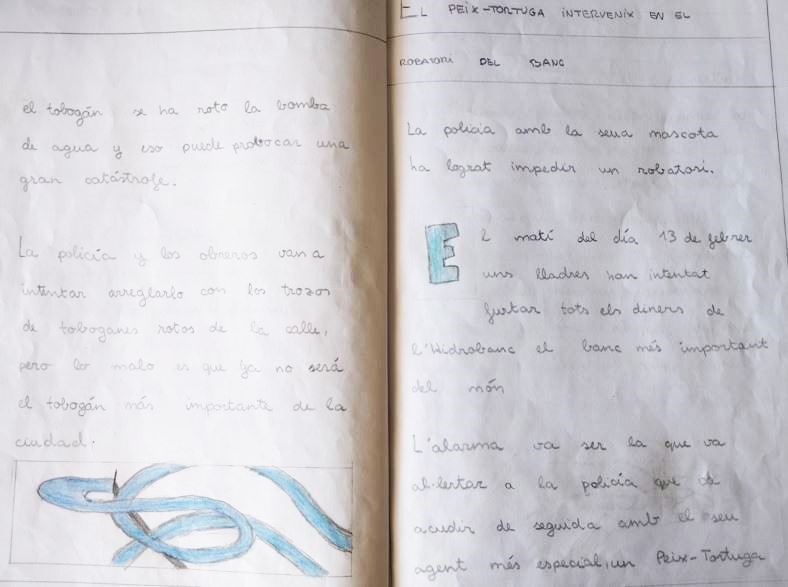 el tobogán se ha roto la bomba
de agua y eso puede probocar una
gran catástrofe.
La policía y los obreros van a
intentar arreglarlo con los trozos
de toboganes rotos de la calle,
pero lo malo es que ya no será
el tobogán más importante de la
ciudad.
EL PEIX-TORTUGA INTERVENIX EN EL
ROBATORI DEL BANC
La policia amb la seua mascota
ha lograt impedir un robatori.
El matí del día 13 de febrer
uns lladres han intentat
furtar tots els diners de
l'Hidrobanc el banc més important
del món
L'alarma va ser la que va
al·lertar a la policía que va
acudir de seguida amb el seu
agent més especial, un Peix-Tortuga